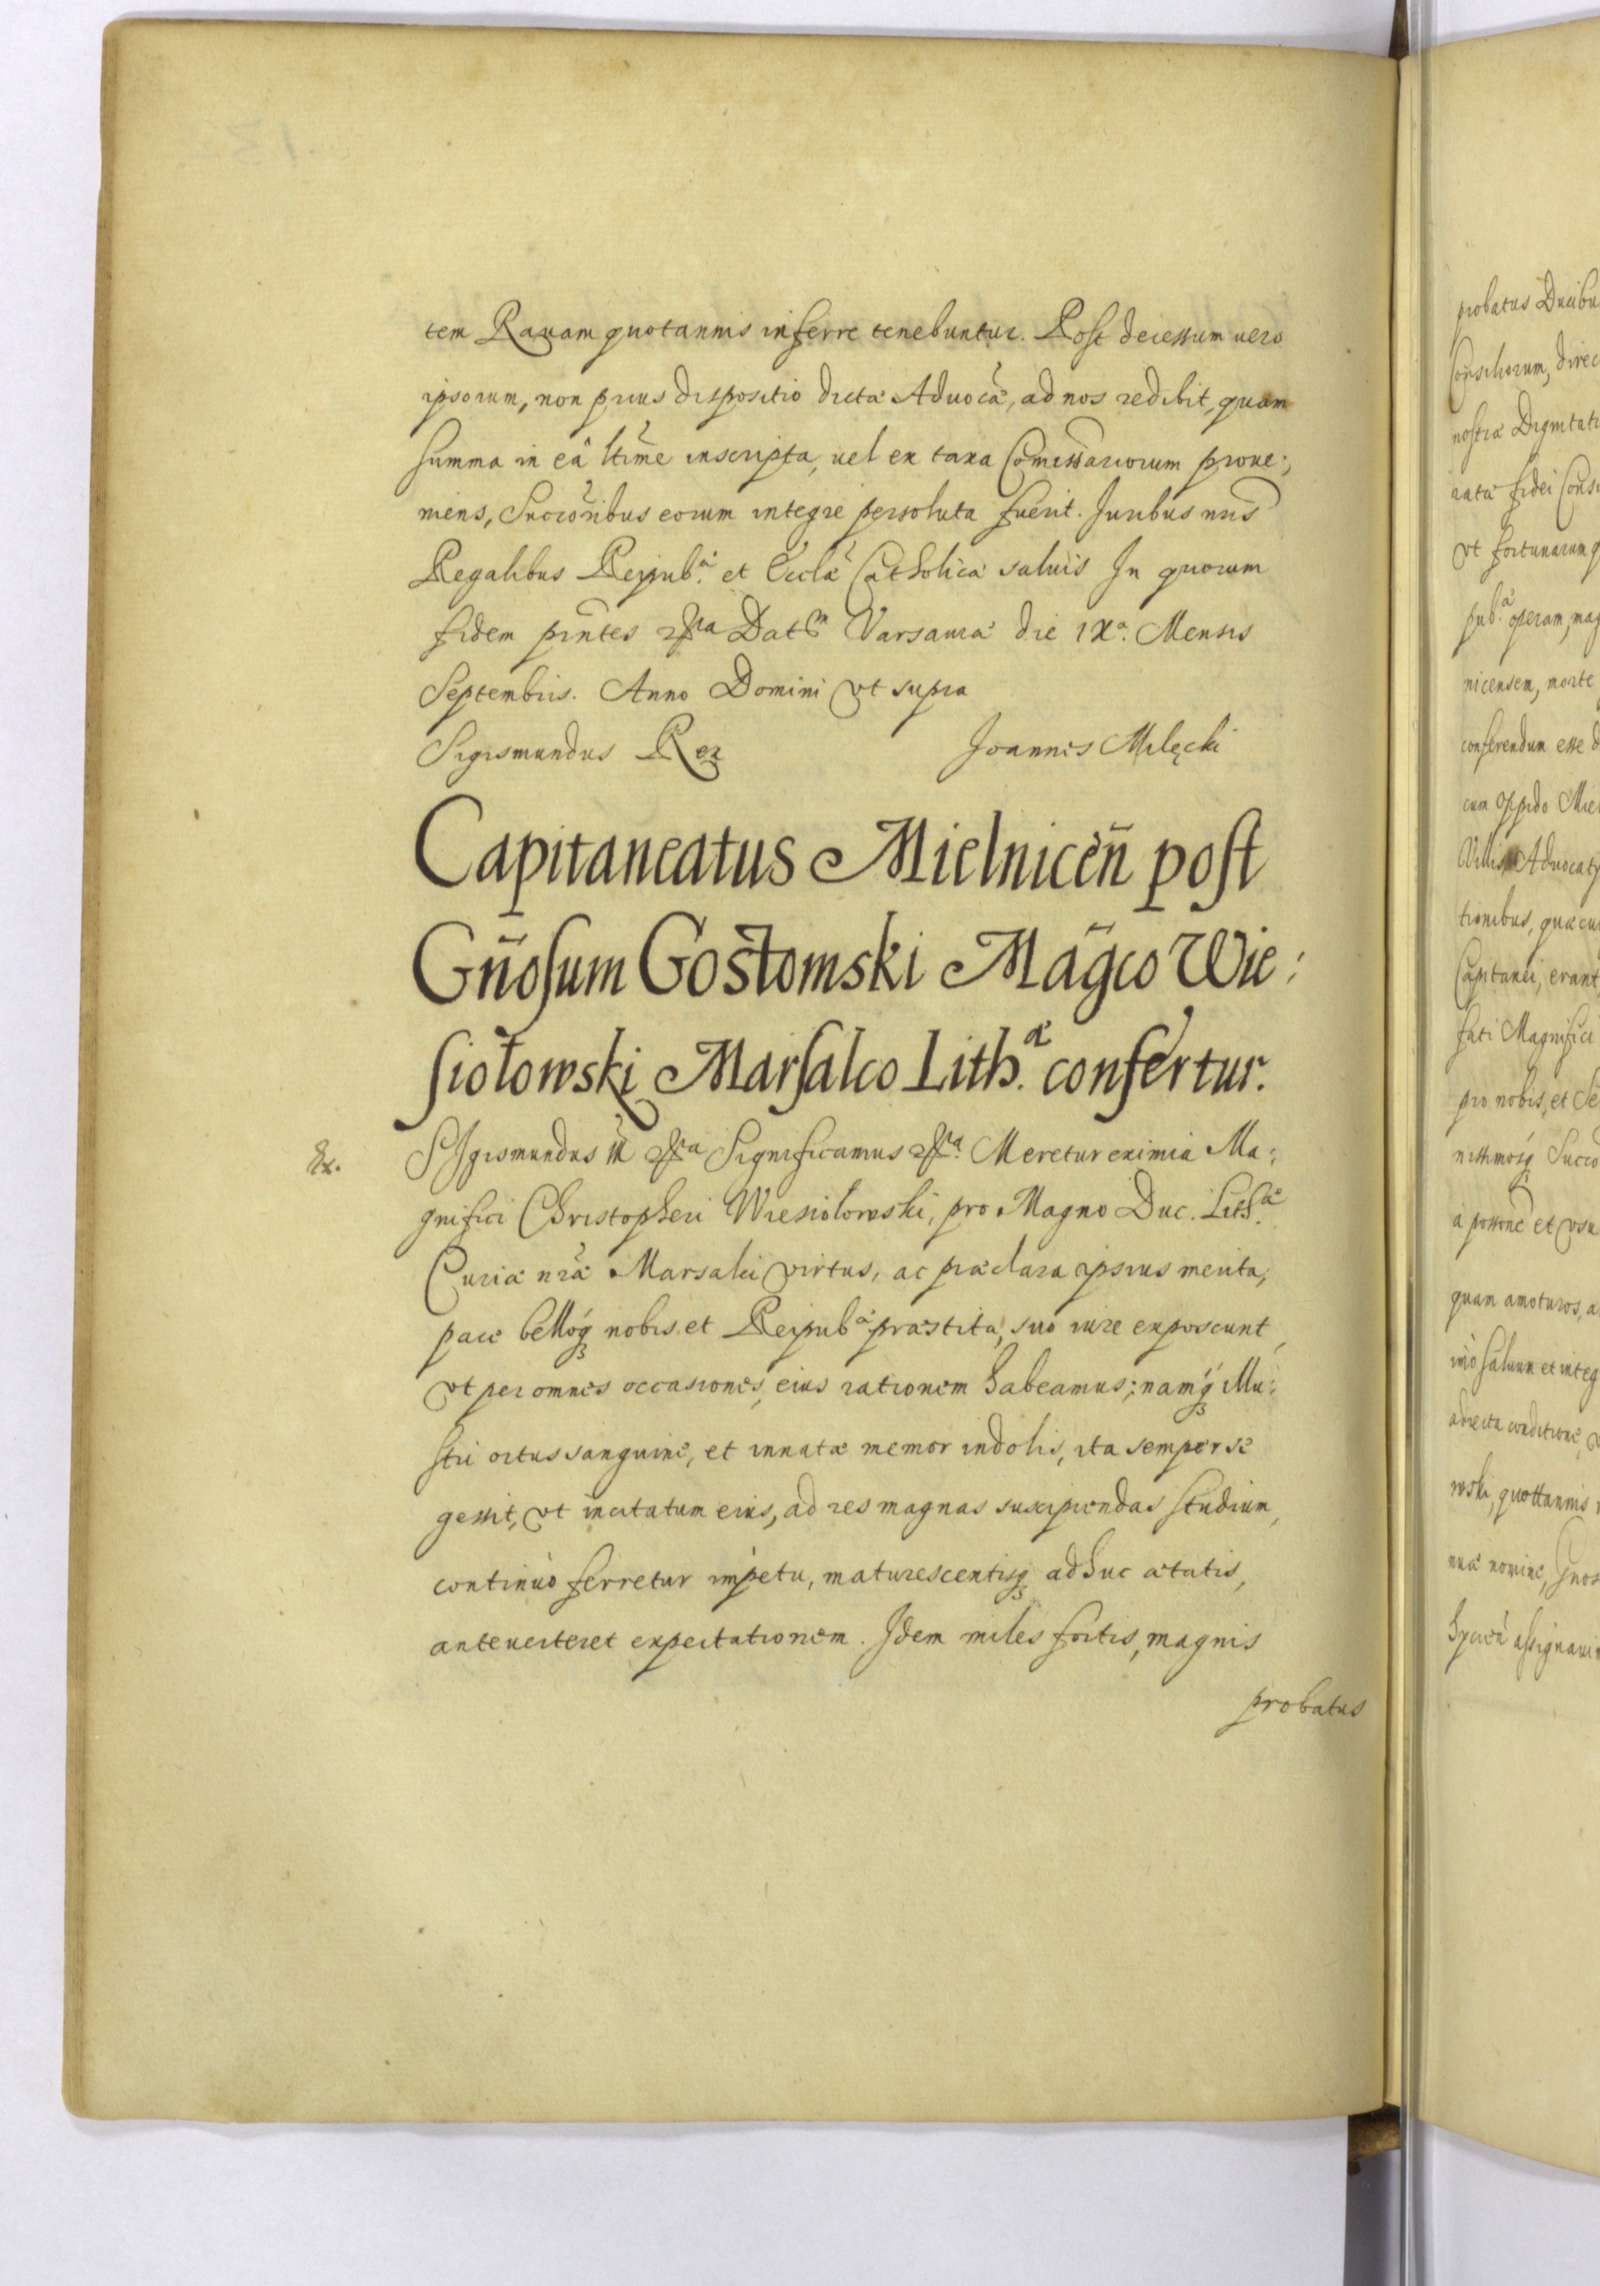 tem Rauam quotannis inferre tenebuntur. Post decessum uero
ipsorum, non prius dispositio dictæ Aduocã, ad nos redibit, quam
summa in eâ ltime inscripta, uel ex taxa Comissariorum proue:
niens, Succoribus eorum integre persoluta fuerit. Juribus nris
Regalibus Reipub.æ et Ecclæ Catholicæ saluis In quorum
fidem pñtes &ra Datm Varsauiæ die IXa. Mensis
Septembris. Anno Domini vt supra
Sigismundus Rex Joannes Milęcki
Capitaneatus Mielnicen̄ post
Gñosum Gostomski Mag̃co Wie:
siołowski Marsalco Lith.æ confertur.
Ex.
SIgismundus III &ra Significamus &ra. Meretur eximia Ma:
gnifici Christopheri Wiesiołowski, pro Magno Duc. Lith.æ
Curiæ nræ Marsalci virtus, ac præclara ipsius merita,
pace bellóq; nobis et Reipub.æ præstita, suo iure exposcunt,
vt per omnes occasiones, eius rationem habeamus; namq; illu:
stri ortus sanguine, et innatæ memor indolis, ita semper se
gessit, vt incitatum eius, ad res magnas suscipiendas studium,
continuò ferretur impetu, maturescentisq; adhuc ætatis,
anteuerteret expectationem. Idem miles fortis, magnis
probatus
probatus Ducibu
Consiliorum, direc
nostræ Dignitati
ratæ fidei Cons
vt fortunarumq
pub.æ operam, mag
nicensem, morte
conferendum esse d
cum oppido Mie
Villis, Aduocaty
tionibus, quæcu
Capitanei, erant
fati Magnifici
pro nobis, et Se
nissimosq; Succo
a possone et vsu
quam amoturos, a
imò saluum et integ
adiecta conditione, v
wski, quottannis
nuæ nomine,
assignaui